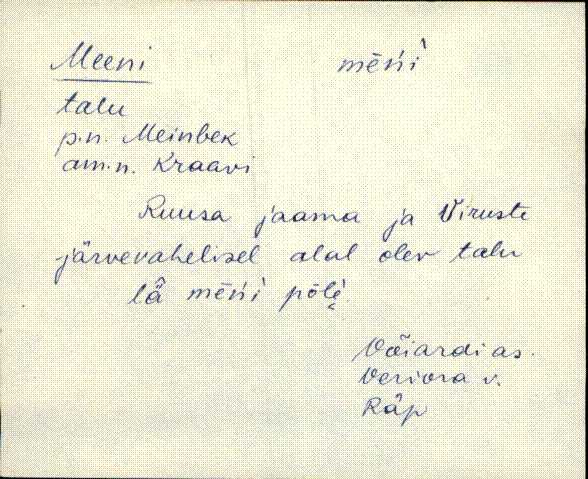 Meeni mēńì
talu
p.n. Meinbek
am.n. Kraavi
Ruusa jaama ja Viruste
järvevahelisel alal olev talu
lä̬ mēńì pōlè̬
Võiardi as.
Veriora v.
Räp